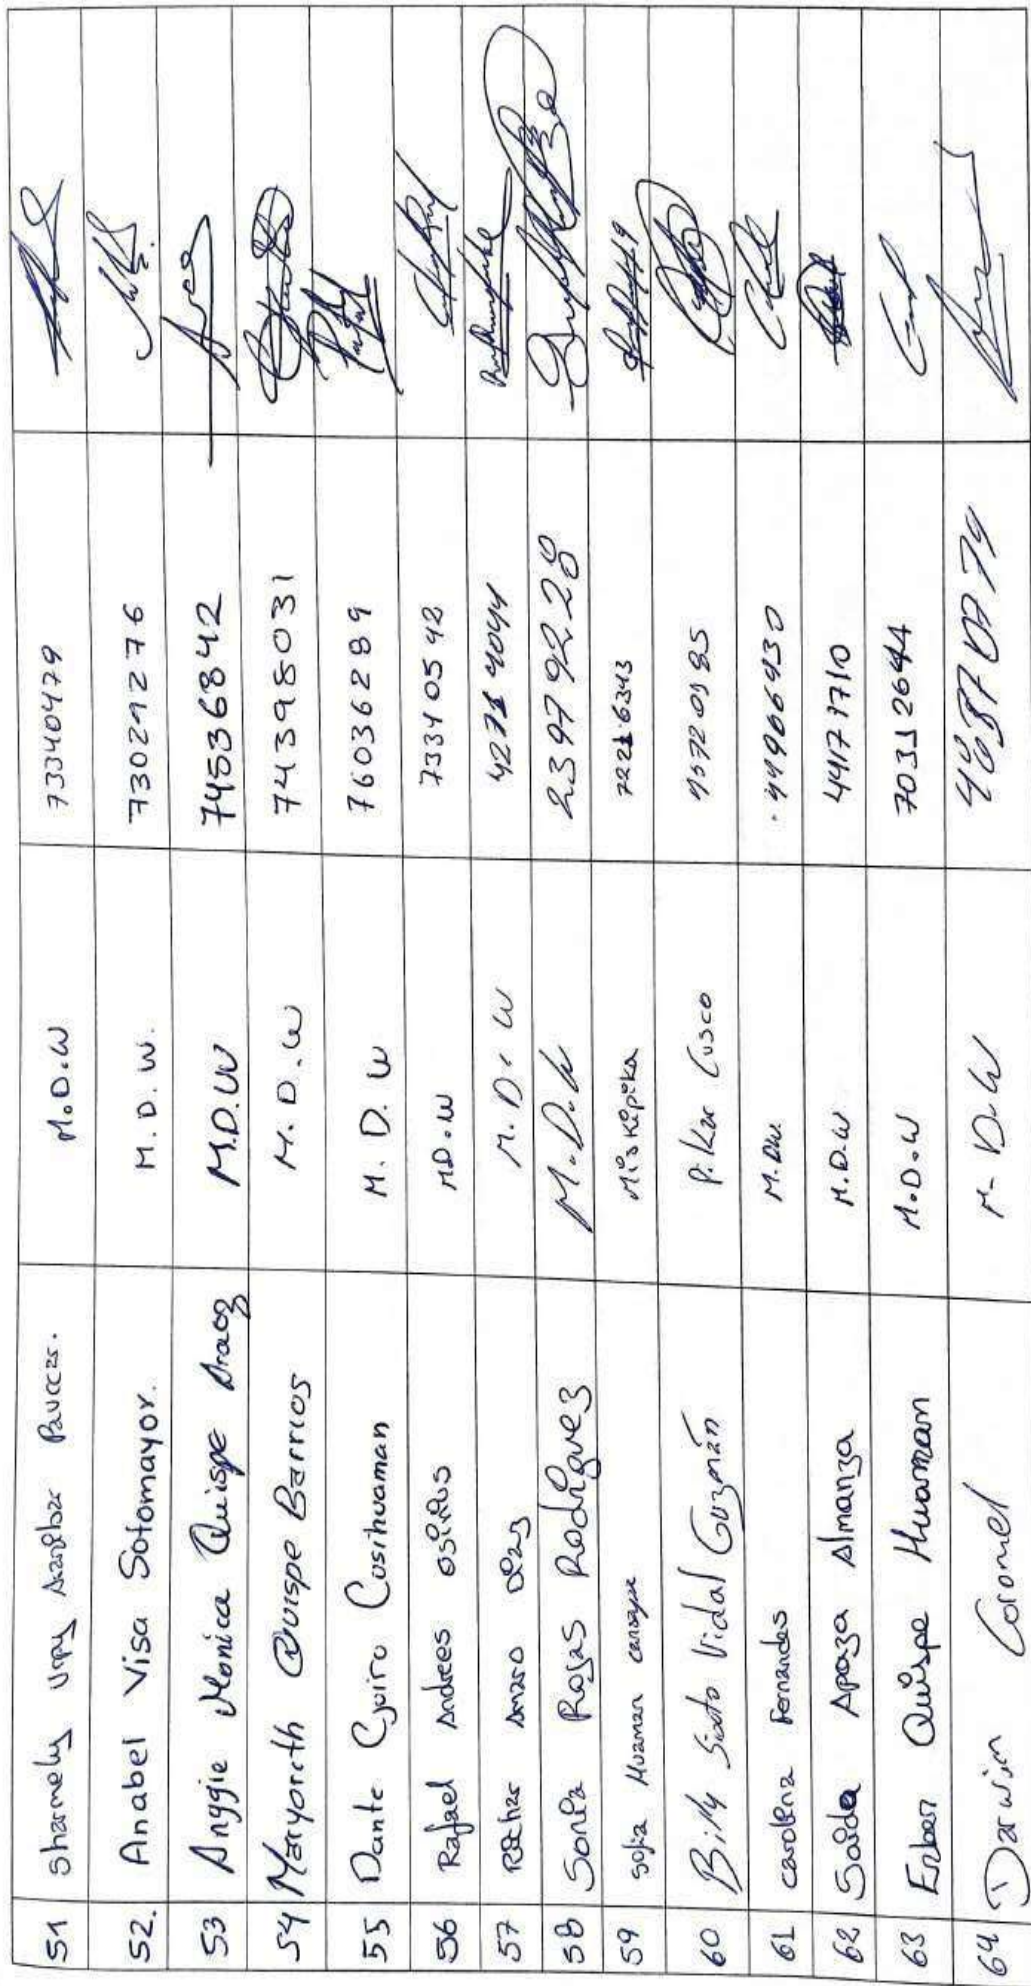 51 Sharmely Urpy Paucces. M.D.W 73340479
52. Anabel Visa Sotomayor. M. D. W. 73029276
53 Anggie Monica Quispe Araoz M.D.W 74536842
54 Maryoreth Quispe Barrios M. D. W 74398031
55 Dante Cjuiro Cusihuaman M. D. W 76036289
56 Rafael Andrees M.D.W 73340542
57 Amaro Diaz M. D. W 4044
58 Sonia Rojas Rodriguez M.D.W 23979228
59 Sofia Huaman Miskipika
60 Billy Sixto Vidal Guzmán Cusco
61 Carolina Fernandes M.DW. 44966430
62 Saida Apaza Almanza M.D.W 44177710
63 Quispe Huaman M.D.W
64 Darwin Coronel M- D.W